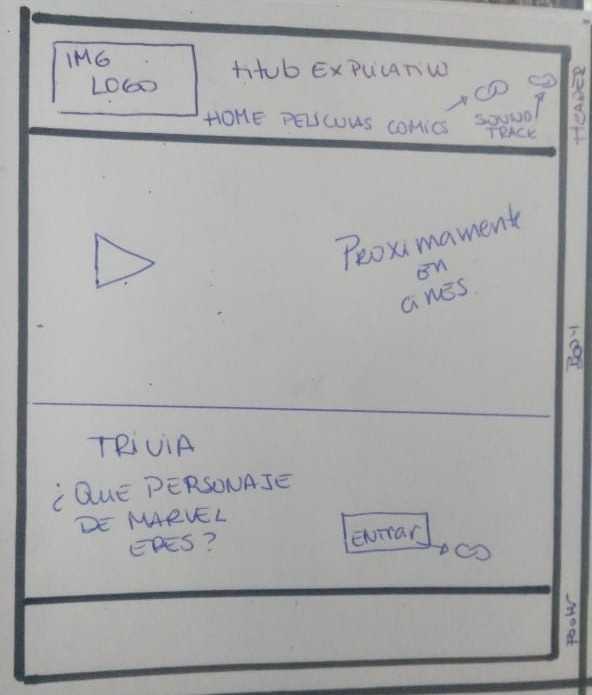 IMG
LOGO
titulo EXPLICATIVO
HOME PELICULAS COMICS SOUND
TRACK
HEADER
PROXIMAMENTE
EN
CINES.
BODY
TRIVIA
¿QUE PERSONAJE
DE MARVEL
ERES?
ENTRAR
FOOTER